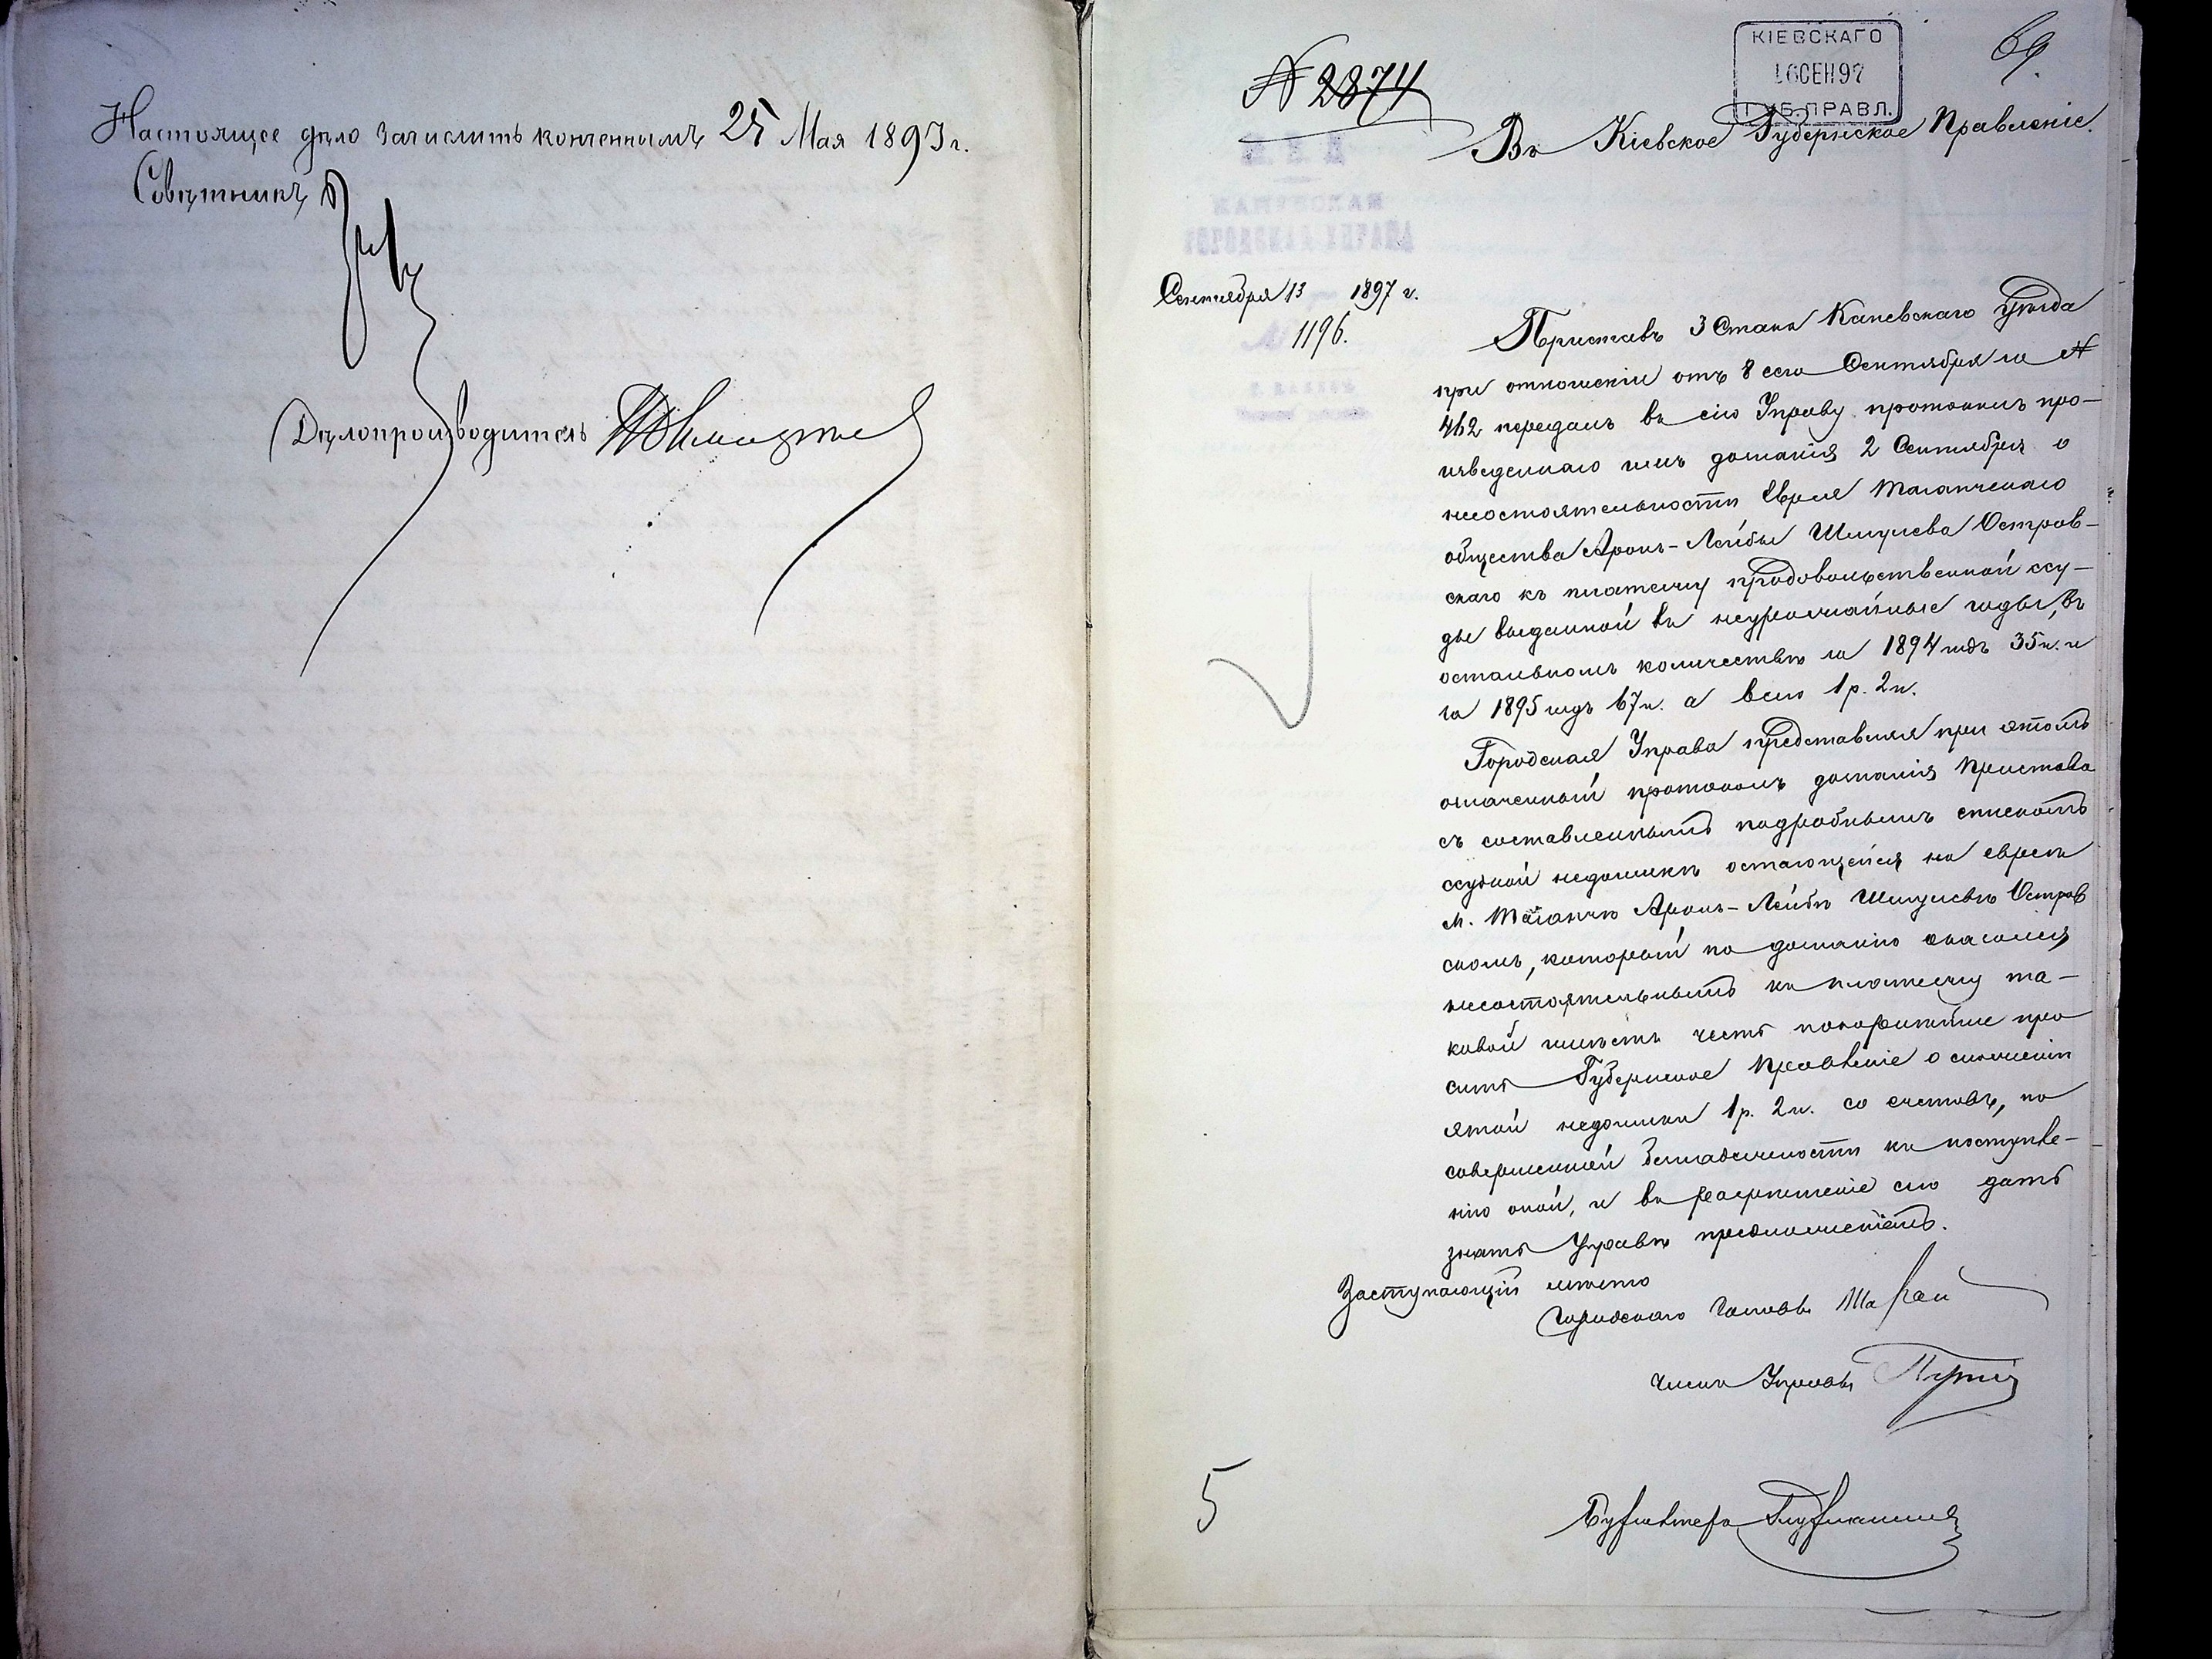 Настоящее дѣло зачислить конченнымъ 25 Мая 1893 г.
Совѣтникъ
Дѣлопроизводитель
КІЕВСКАГО
16 СЕН 97
ГУБ. ПРАВЛ.
69.
№ 2874
Въ Кіевское Губернское Правленіе.
М. В. Д.
КАНЕВСКАЯ
ГОРОДСКАЯ УПРАВА
Сентября 13 1897 г.
№ 1196.
Г. КАНЕВЪ
Приставъ 3 Стана Каневскаго Уѣзда
при отношеніи отъ 8 сего Сентября за №
462 передалъ въ сію Управу протоколъ про-
изведеннаго имъ дознанія 2 Сентября о
несостоятельности Еврея Таганчскаго
общества Аронъ-Лейбы Шмулева Остров-
скаго къ платежу продовольственной ссу-
ды выданной въ неурожайные годы, въ
остальномъ количествѣ за 1894 годъ 35 к. и
за 1895 годъ 67 к. а всего 1 р. 2 к.
Городская Управа представляя при этомъ
означенный протоколъ дознанія Пристава
съ составленнымъ подробнымъ спискомъ
ссудной недоимки остающейся на евреѣ
м. Таганчи Аронъ-Лейбѣ Шмулевѣ Остров
скомъ, который по дознанію оказался
несостоятельнымъ къ платежу та-
ковой имѣетъ честь покорнѣйше про
сить Губернское Правленіе о сложеніи
этой недоимки 1 р. 2 к. со счетовъ, по
совершенной безнадежности къ поступле-
нію оной, и въ разрѣшеніе сего дать
знать Управѣ предложеніемъ.
Заступающій мѣсто
Городского Головы
Члены Управы
Бухгалтеръ
5